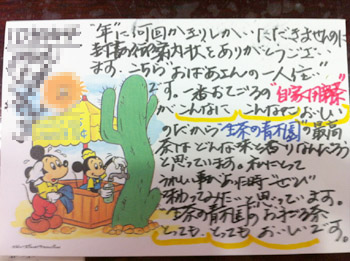 "年"に何回かまりしかいただきませんのに
封書の御案内状をありがとうござい
ます。こちら"おばあさんの一人生"
です。一番おてごろの"自家用茶"
がこんなに こんなにおいしい
のだから"生茶の青木園"の最高
茶はどんな味と香りなんだろう
と思っています。私にとって
うれしい事があった時"ぜひ"
味わってみたいと思っています。
生茶の青木園のおすすめ茶
とっても とっても おいしいです。